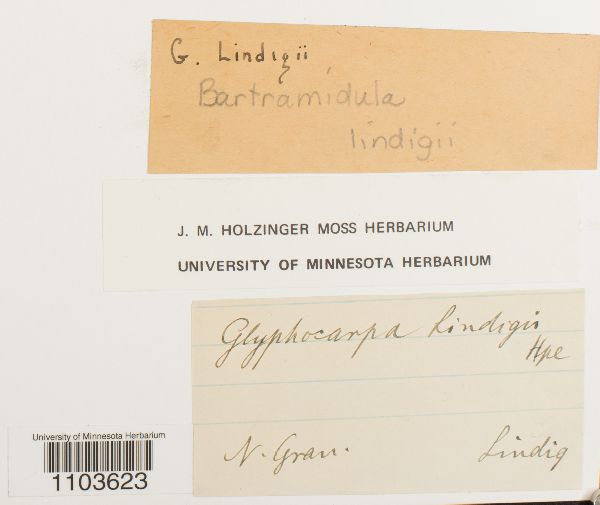 G. Lindigii
Bartramidula
lindigii
J. M. HOLZINGER MOSS HERBARIUM
UNIVERSITY OF MINNESOTA HERBARIUM
Glyphocarpa Lindigii
Hpe
N. Gran.
Lindig
University of Minnesota Herbarium
1103623